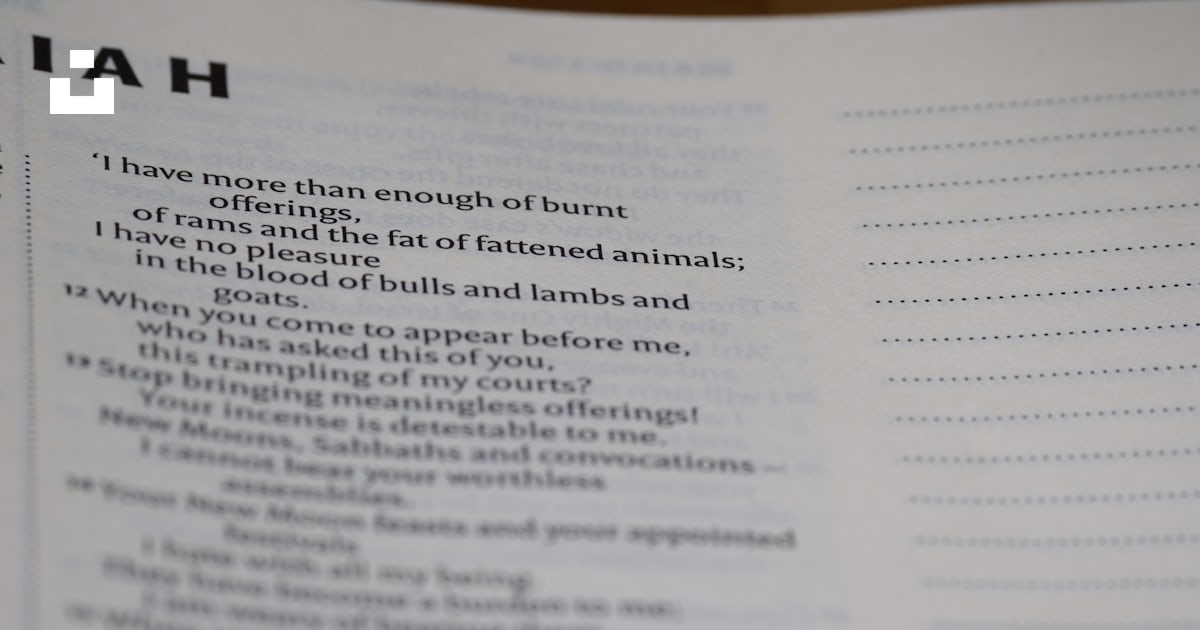 IAH
‘I have more than enough of burnt
offerings,
of rams and the fat of fattened animals;
I have no pleasure
in the blood of bulls and lambs and
goats.
12 When you come to appear before me,
who has asked this of you,
this trampling of my courts?
13 Stop bringing meaningless offerings!
Your incense is detestable to me.
New Moons, Sabbaths and convocations –
I cannot bear your worthless
assemblies.
14 Your New Moon feasts and your appointed
festivals
I hate with all my being.
They have become a burden to me;